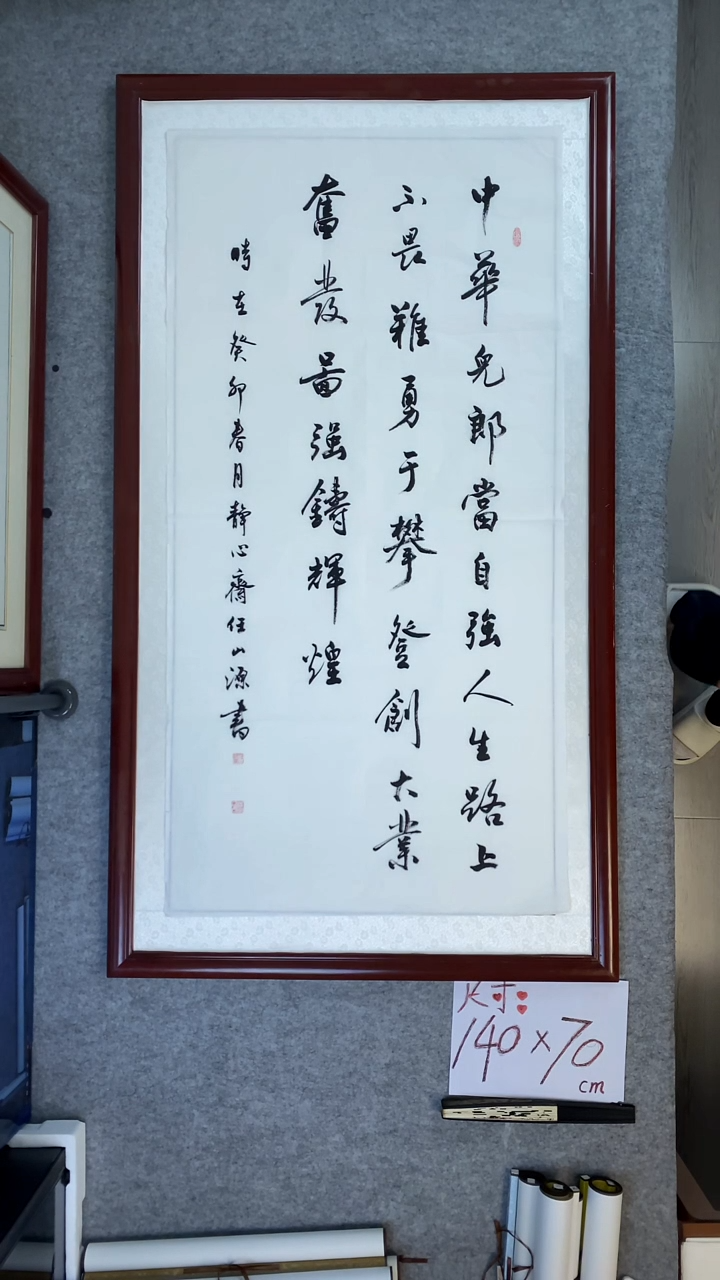 中華兒郎當自強人生路上
不畏難勇于攀登創大業
奮發啚强鑄輝煌
時在癸卯春月静心齋任山源書
尺寸:
140×70
cm